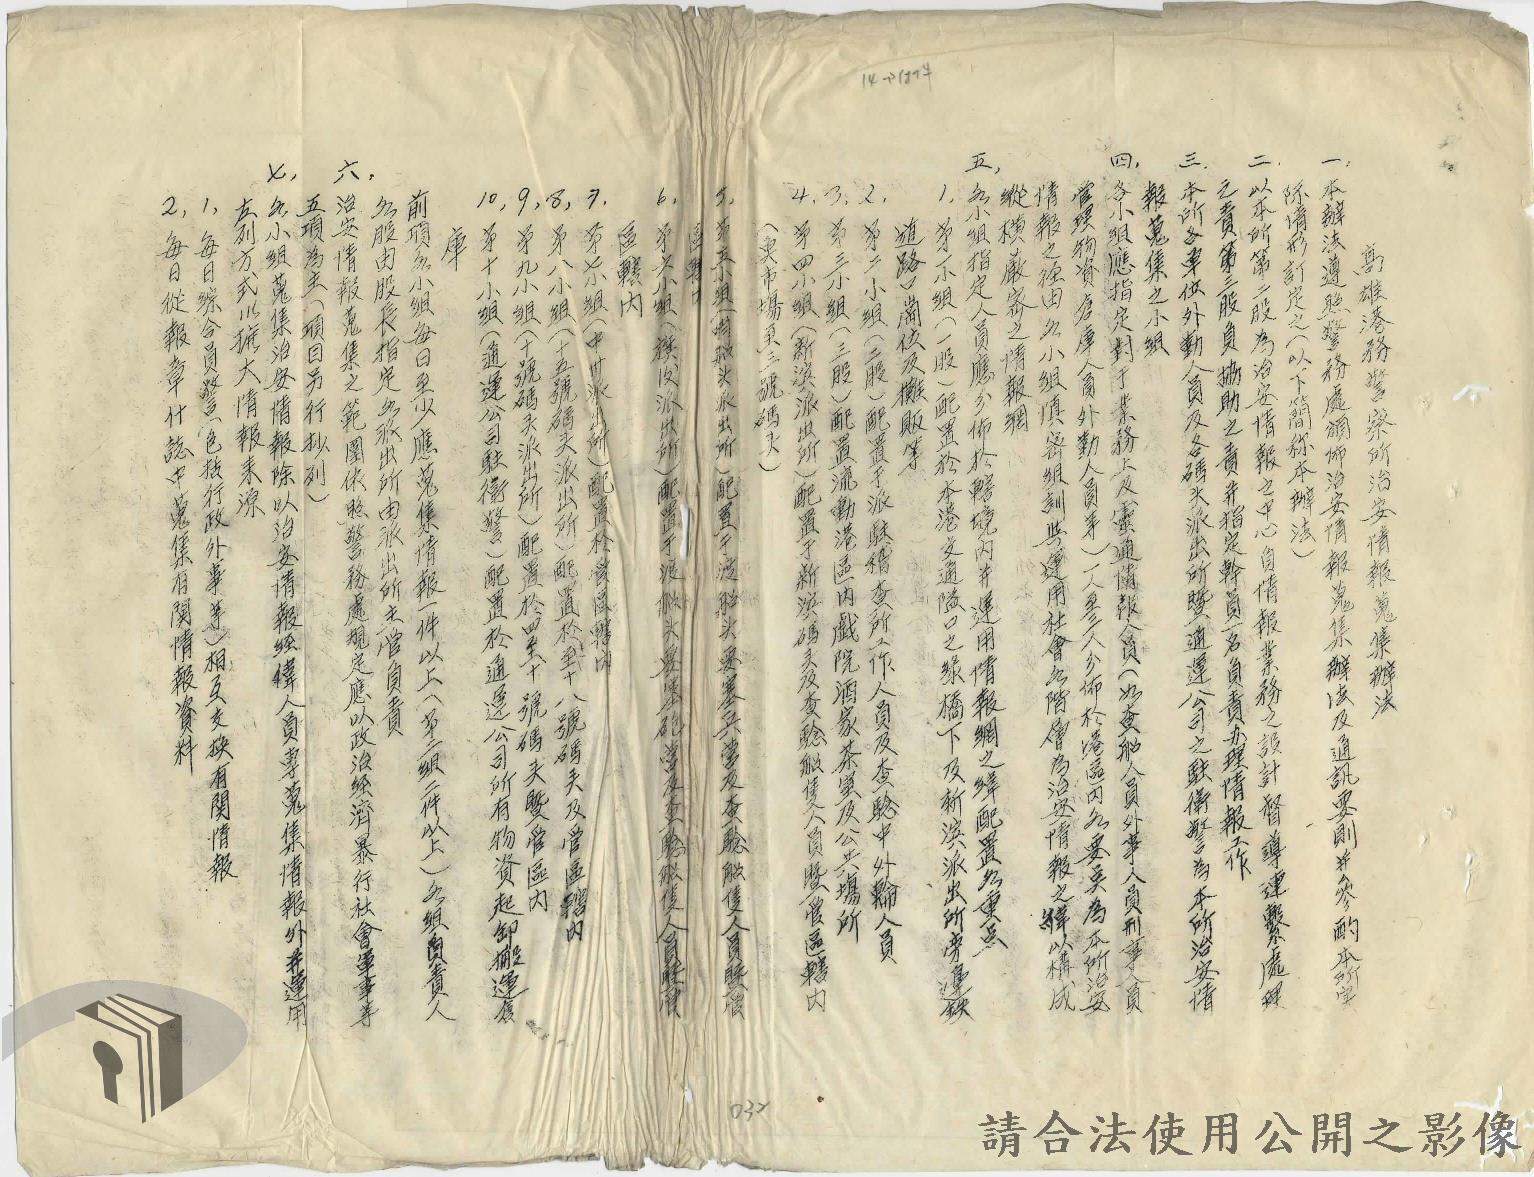 14→1974
高雄港務警察所治安情報蒐集辦法
一、本辦法遵照警務處頒佈治安情報蒐集辦法及通訊要則並參酌本所實
際情形訂定之(以下簡称本辦法)
二、以本所第二股為治安情報之中心自情報業務之設計督導連繫處理
之責第三股負協助之責并指定幹員一名負責办理情報工作
三、本所各单位外勤人員及各碼头派出所暨通運公司之駐衛警為本所治安情
報蒐集之小組
四、各小組應指定對于業務上及靈通情報人員(如查船人員外事人員刑事人員
管理物資倉庫人員外勤人員等)一人至三人分佈於港區內各要点為本所治安
情報之經由各小組慎密組訓與運用社會各階層為治安情報之緯以構成
縱橫嚴密之情報網
五、各小組指定人員應分佈於轄境內并運用情報網之緯配置各重点
1、第一小組(一股)配置於本港交通隘口之綠橋下及新浜派出所旁邊鉄
道路口崗位及攤販等
2、第二小組(二股)配置于派駐稽查所工作人員及查驗中外輪人員
3、第三小組(三股)配置流動港區內戲院酒家茶室及公共場所
4、第四小組(新浜派出所)配置于新浜碼头及查驗船隻人員暨管區轄內
(魚市場至三號碼头)
5、第五小組(哨船头派出所)配置于渡船头要塞兵營及查驗船隻人員暨管
區轄內
6、第六小組(旗後派出所)配置于渡船头要塞砲營及查驗船隻人員暨管
區轄內
7、第七小組(中洲派出所)配置於管區轄內
8、第八小組(十五號碼头派出所)配置於至十八號碼头及管區轄內
9、第九小組(十號碼头派出所)配置於四至十號碼头暨管區內
10、第十小組(通運公司駐衛警)配置於通運公司所有物資起卸搬運倉
庫
前項各小組每日至少應蒐集情報一件以上(第三組二件以上)各組負責人
各股由股長指定各派出所由派出所主管負責
六、治安情報蒐集之範圍依照警務處規定應以政治經濟暴行社會軍事等
五項為主(項目另行抄列)
七、各小組蒐集治安情報除以治安情報經緯人員專蒐集情報外并運用
左列方式以擴大情報来源
1、每日綜合員警(包括行政外事等)相互交換有関情報
2、每日從報章什誌中蒐集有関情報資料
032
請合法使用公開之影像